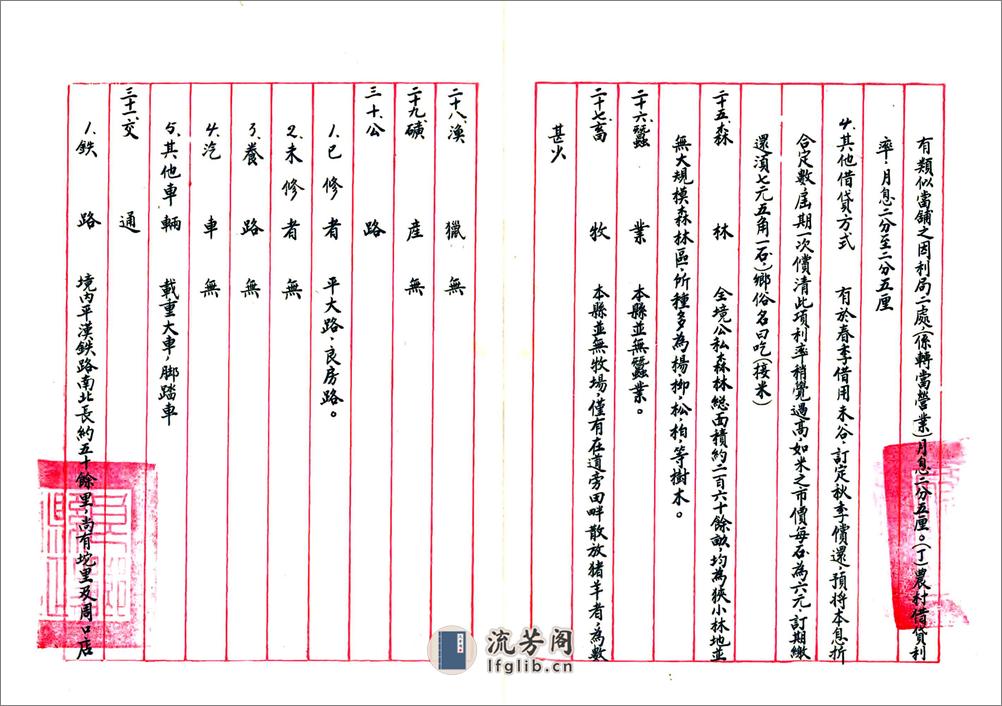 有類似當舖之因利局二處(係轉當營業)月息二分五厘。(丁)農村借貸利
率,月息二分至二分五厘
4.其他借貸方式 有於春季借用米谷,訂定秋季償還,預將本息折
合定數,屆期一次償清此項利率稍覺過高,如米之市價每石為六元,訂期繳
還須七元五角一石,)鄉俗名曰吃(接米)
二十五.森林 全境公私森林總面積約二百六十餘畝,均為狹小林地並
無大規模森林區,所種多為楊,柳,松,柏,等樹木。
二十六.蠶業 本縣並無蠶業。
二十七.畜牧 本縣並無牧場,僅有在道旁田畔散放猪羊者,為數
甚火
二十八.漁獵 無
二十九.礦產 無
三十.公路
1.已修者 平大路,良房路。
2.未修者 無
3.養路 無
4.汽車 無
5.其他車輛 載重大車,脚踏車
三十一.交通
1.鉄路 境內平漢鉄路南北長約五十餘里,尚有坨里及周口店
流芳阁
lfglib.cn